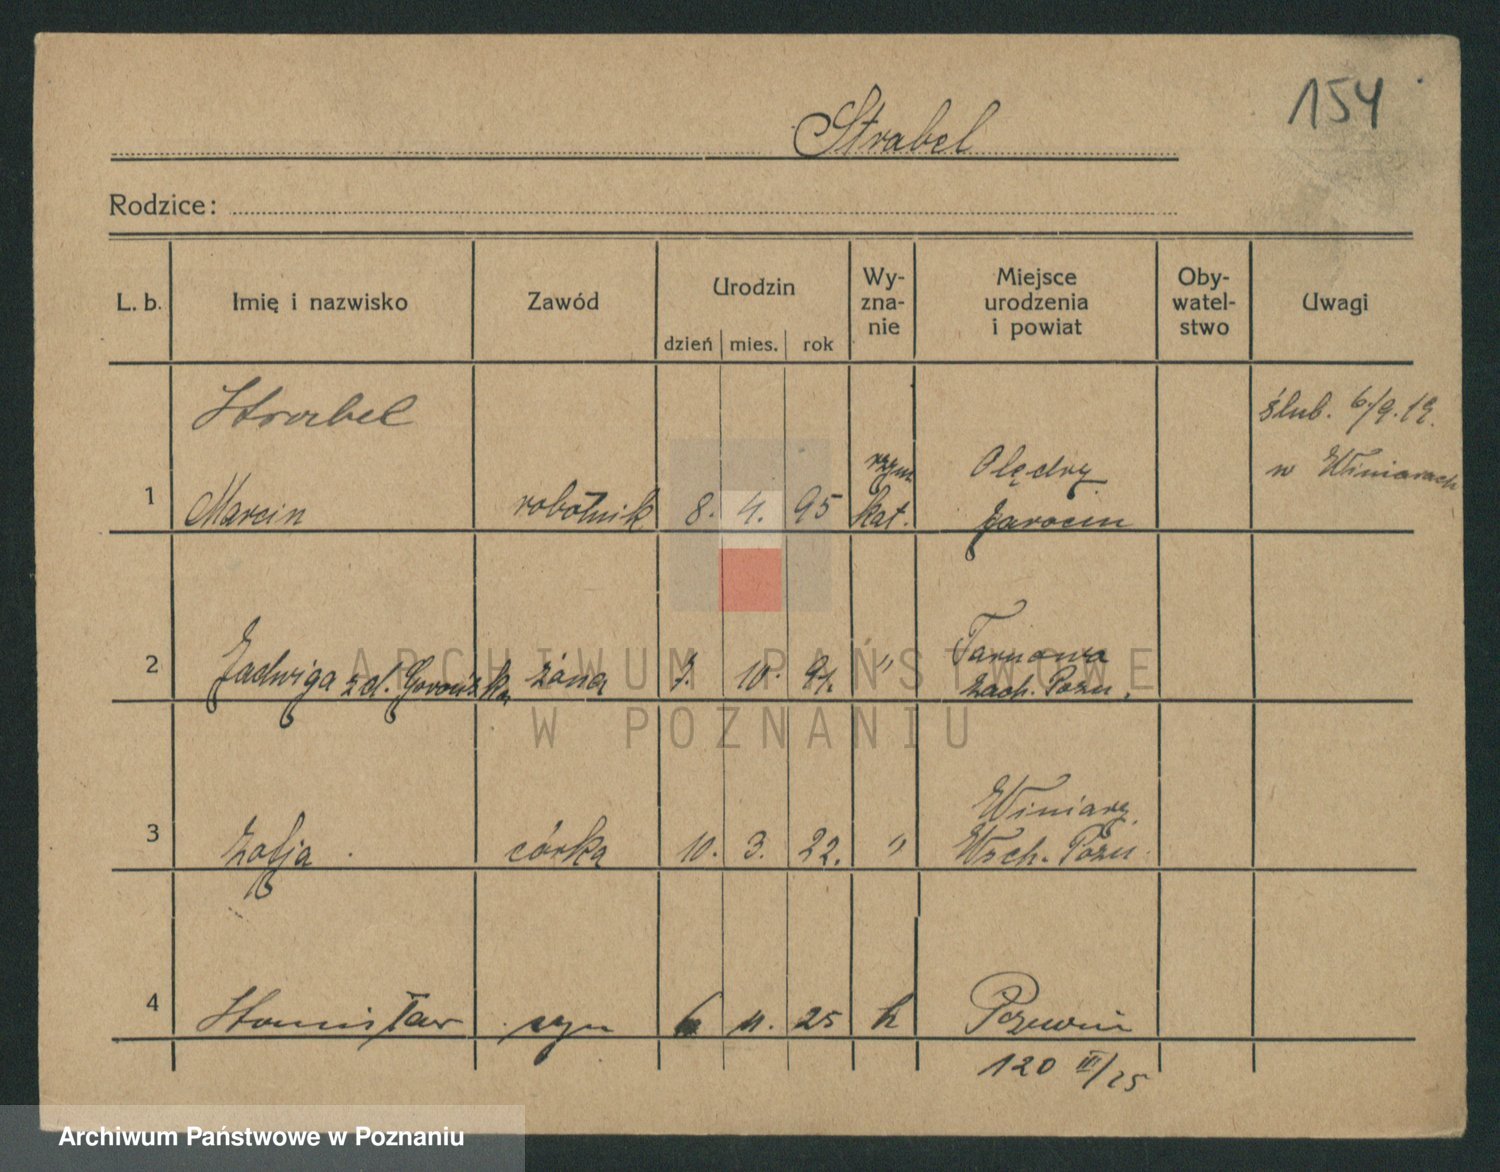 154
Strabel
Rodzice:
L. b.
Imię i nazwisko
Zawód
Urodzin
dzień mies. rok
Wy-
zna-
nie
Miejsce
urodzenia
i powiat
Oby-
watel-
stwo
Uwagi
Strabel
ślub. 6/9. 19.
w Winiarach
1 Marcin robotnik 8. 4. 95 rzym
kat.
Olędry
Jarocin
2 Jadwiga zd. żona 10. 91. "
Tarnowa
zach. Pozn.
3 Zofja córka 10. 3. 22. "
Winiary
Wsch. Pozn.
4 Stanisław syn 6 11. 25 k
Poznań
120 III/25
ARCHIWUM PAŃSTWOWE
W POZNANIU
Archiwum Państwowe w Poznaniu